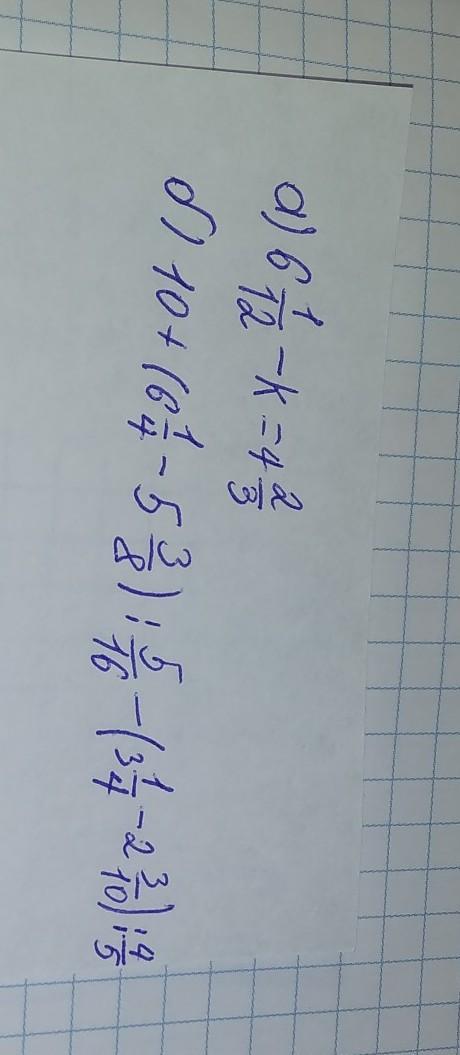 а) 6 1/12 - k = 4 2/3
б) 10 + (6 1/4 - 5 3/8) : 5/16 - (3 1/4 - 2 3/10) : 4/5